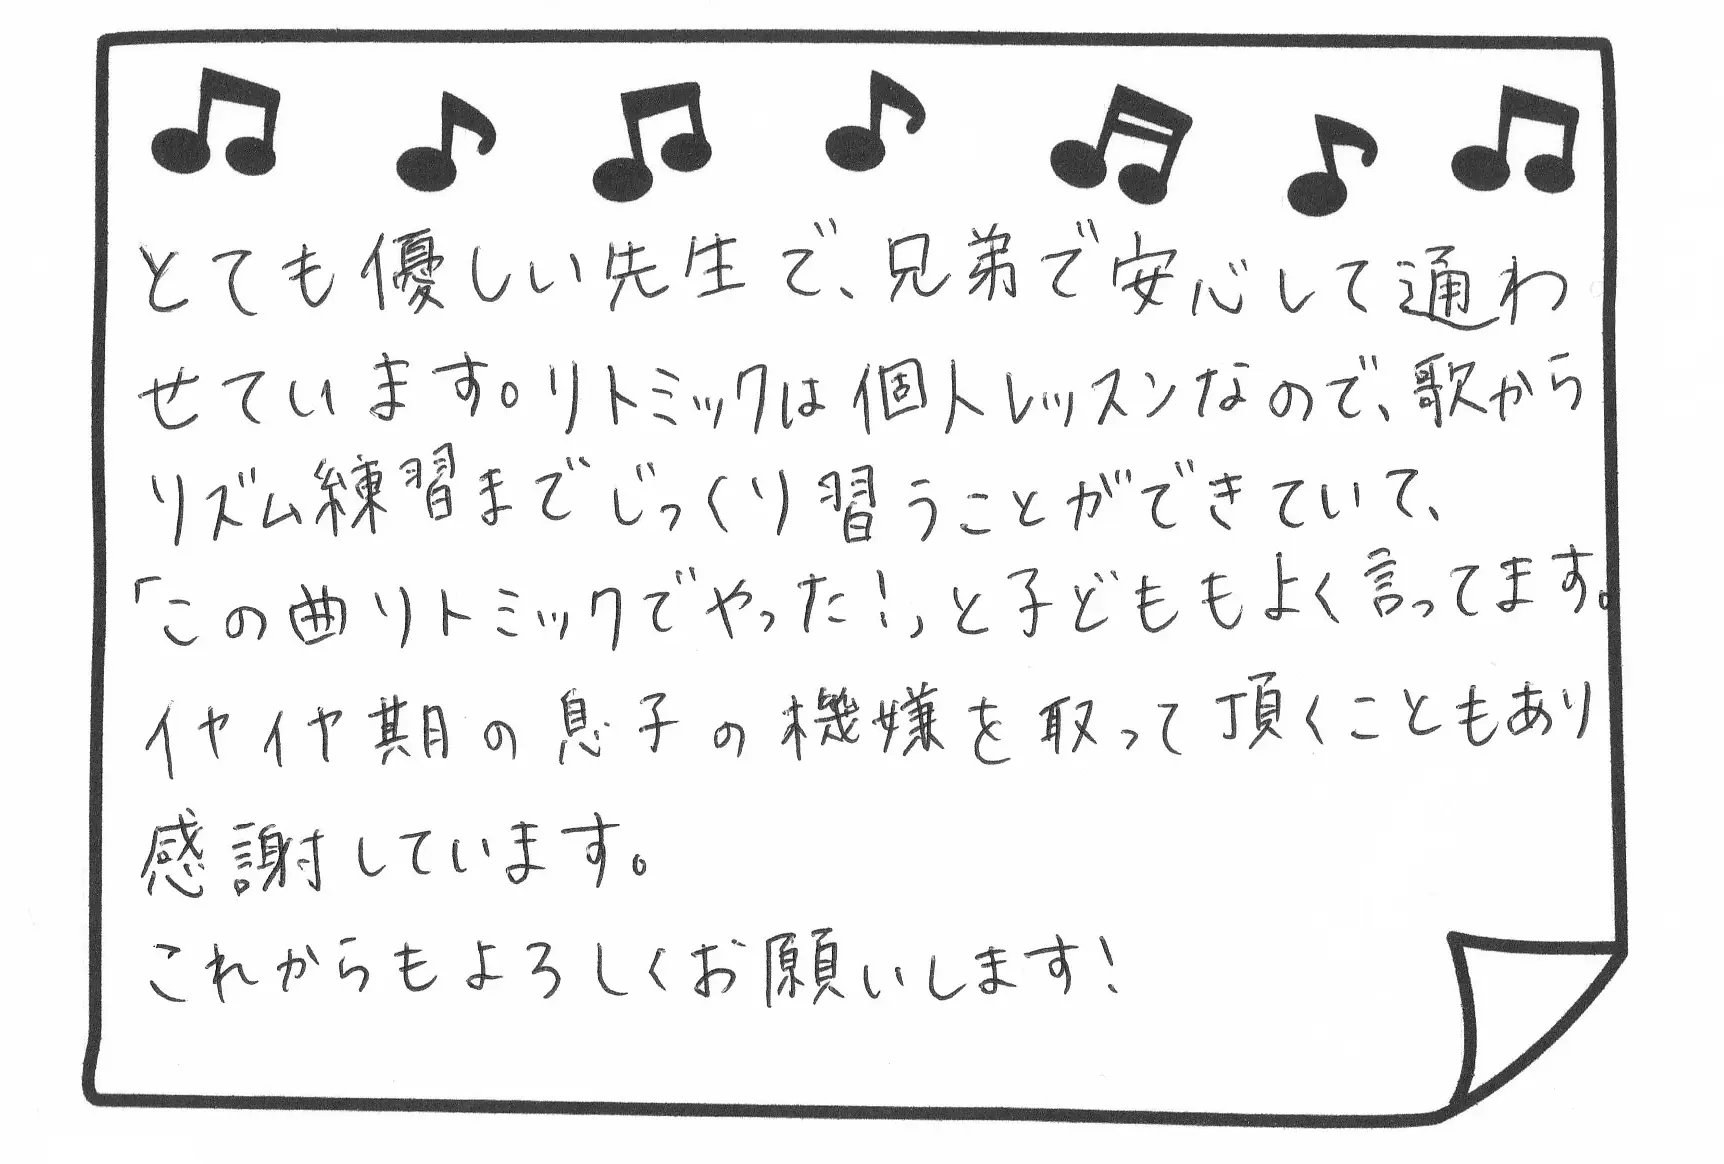 とても優しい先生で、兄弟で安心して通わ
せています。リトミックは個人レッスンなので、歌から
リズム練習までじっくり習うことができていて、
「この曲リトミックでやった！」と子どももよく言ってます。
イヤイヤ期の息子の機嫌を取って頂くこともあり
感謝しています。
これからもよろしくお願いします！